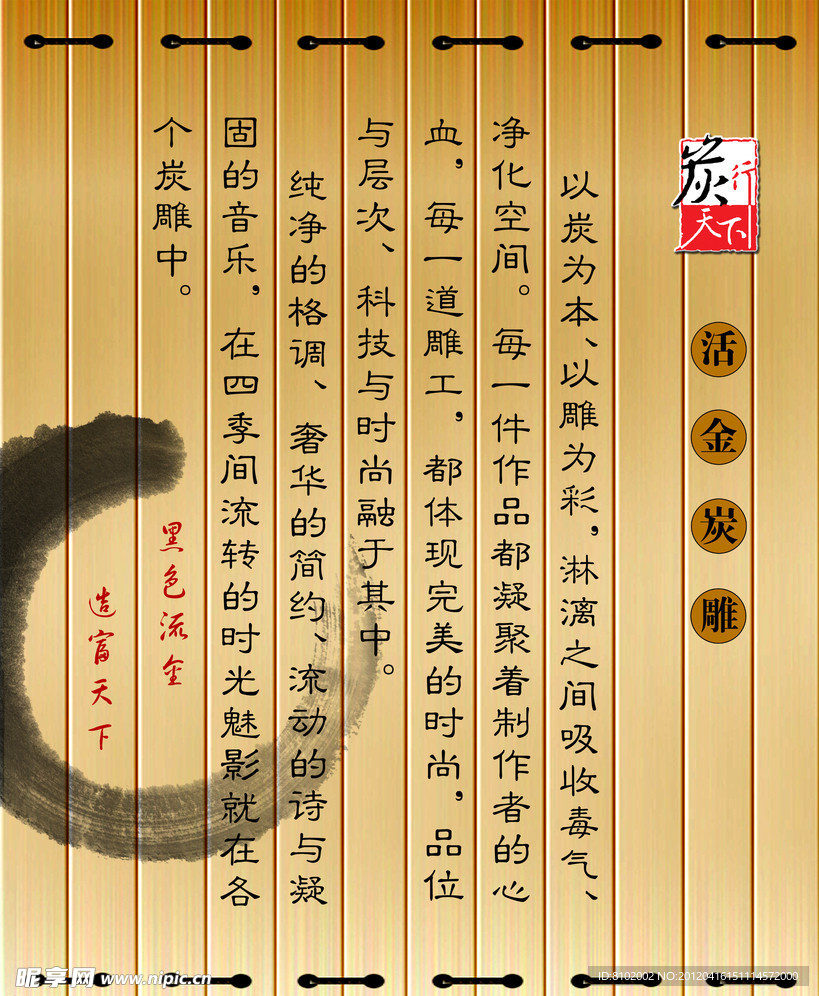 炭行
天下
活金炭雕
以炭为本、以雕为彩，淋漓之间吸收毒气、
净化空间。每一件作品都凝聚着制作者的心
血，每一道雕工，都体现完美的时尚，品位
与层次、科技与时尚融于其中。
纯净的格调、奢华的简约、流动的诗与凝
固的音乐，在四季间流转的时光魅影就在各
个炭雕中。
黑色流金
造富天下
昵享网 www.nipic.cn
ID:8102002 NO:20120416151114572000